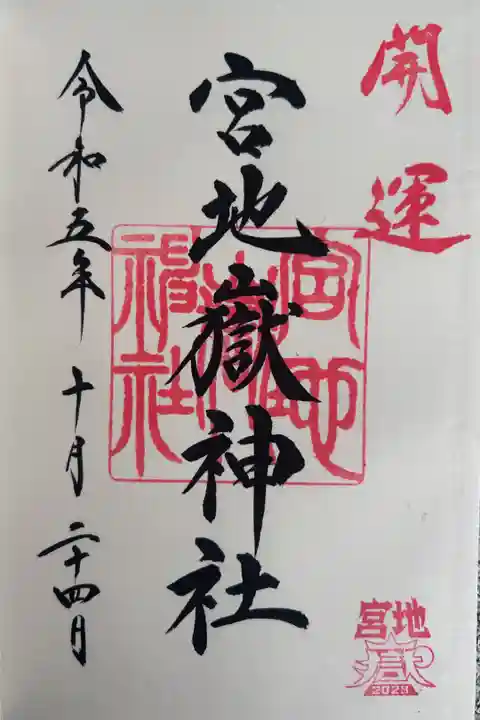 開運
宮地嶽神社
宮地嶽神社
令和五年十月二十四日
宮地
嶽
2023